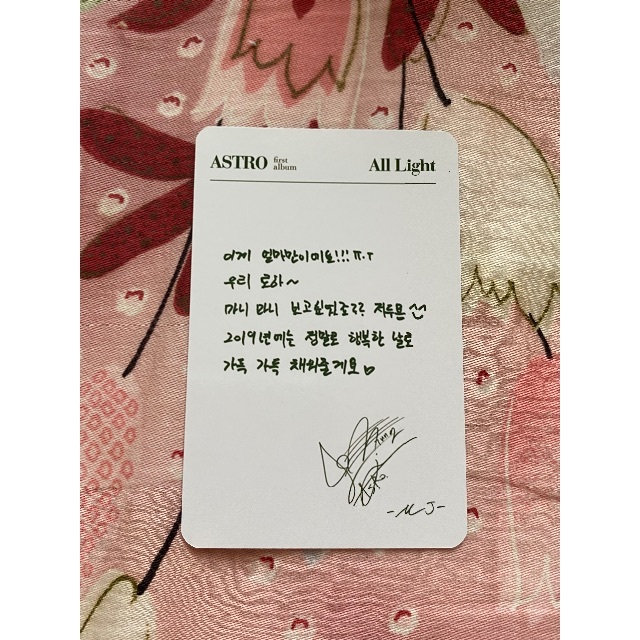 ASTRO first album All Light
이게 얼마만이에요!!! ㅠ.ㅜ
우리 로하~
마니 마니 보고싶었죠?? 저두욤
2019년에는 정말로 행복한 날로
가득 가득 채워줄게요♡
-MJ-